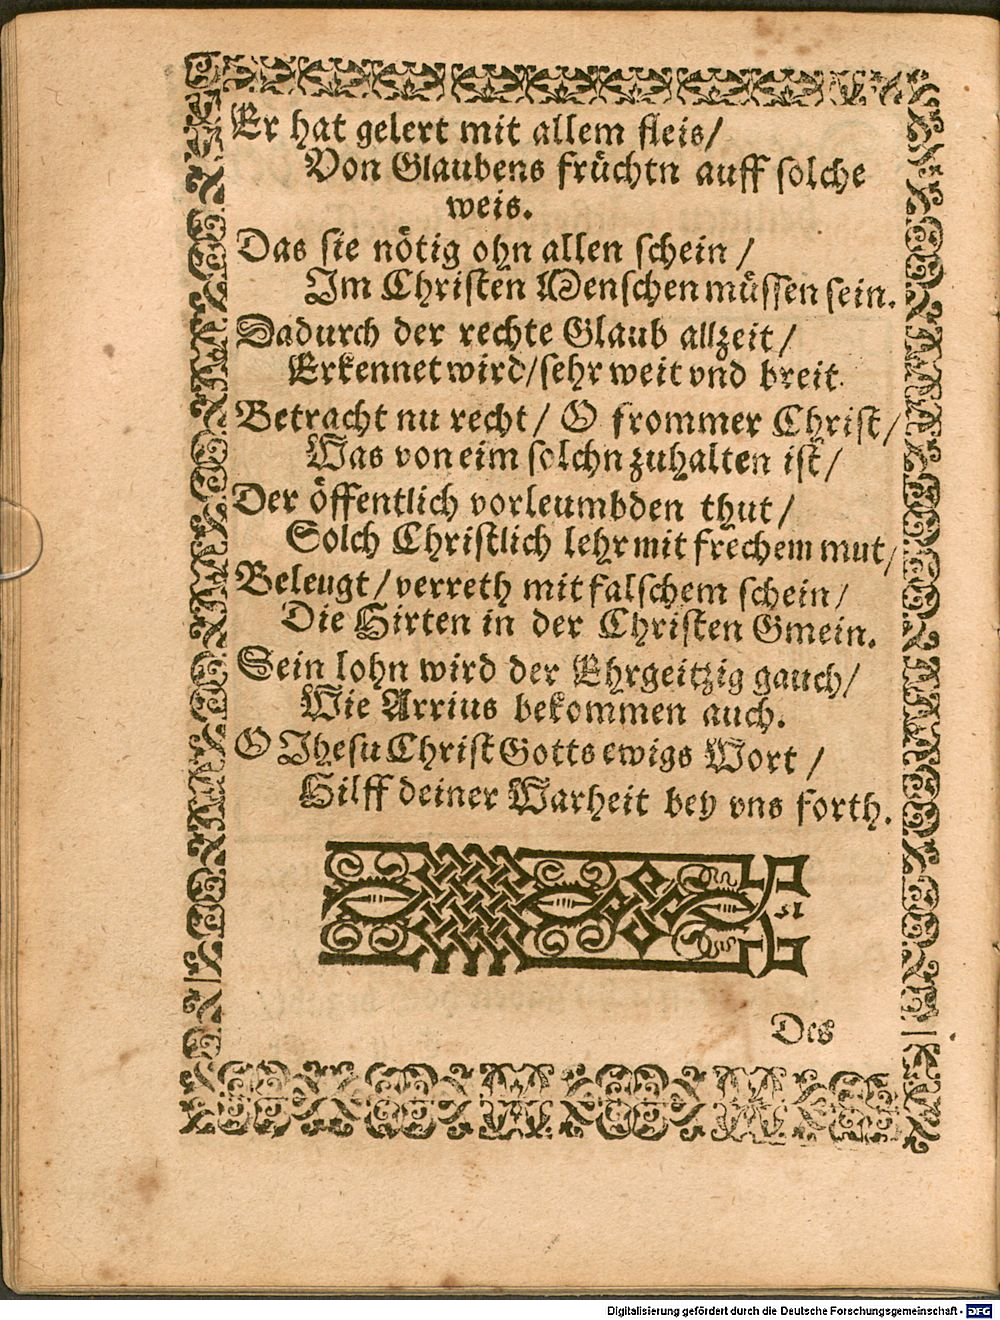 Er hat gelert mit allem fleis/
Von Glaubens früchtn auff solche
weis.
Das sie nötig ohn allen schein /
Im Christen Menschen müssen sein.
Dadurch der rechte Glaub allzeit /
Erkennet wird/sehr weit vnd breit.
Betracht nu recht / O frommer Christ /
Was von eim solchn zuhalten ist /
Der öffentlich vorleumbden thut /
Solch Christlich lehr mit frechem mut /
Beleugt / verreth mit falschem schein /
Die Hirten in der Christen Gmein.
Sein lohn wird der Ehrgeitzig gauch/
Wie Arrius bekommen auch.
O Jhesu Christ Gotts ewigs Wort /
Hilff deiner Warheit bey vns forth.
Des
Digitalisierung gefördert durch die Deutsche Forschungsgemeinschaft - DFG